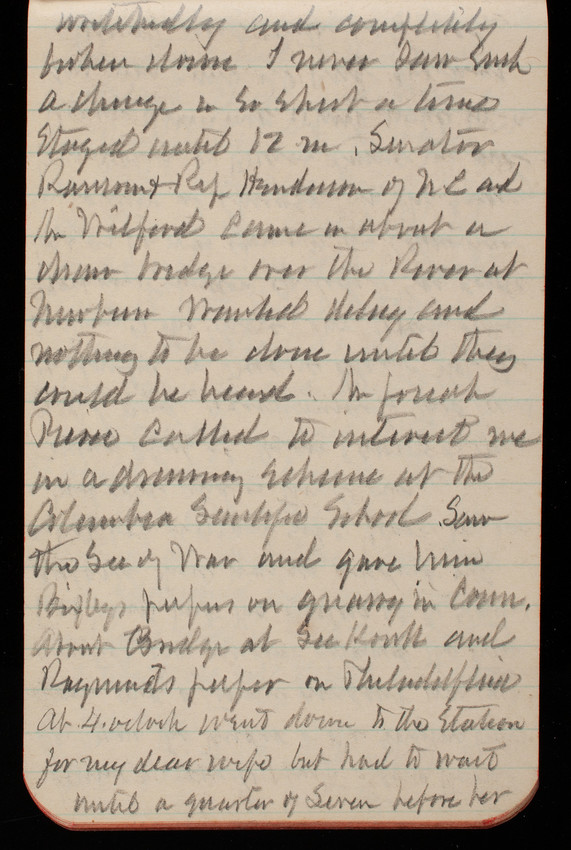 wretchedly and completely
broken down I never saw such
a change in so short a time
Stayed until 12 m. Senator
Ransom & Rep Henderson of NC and
Mr Wilford came in about a
draw bridge over the River at
Newbern wanted delay and
nothing to be done until they
could be heard. Mr Joseph
Pierce called to interest me
in a dreming scheme at the
Columbia Scientific School. Saw
the Sec of War and gave him
Bixbys papers on quarry in Conn.
About Bridge at Seekonk and
Raymonds paper on Philadelphia
At 4. oclock went down to the Station
for my dear wife but had to wait
until a quarter of Seven before her